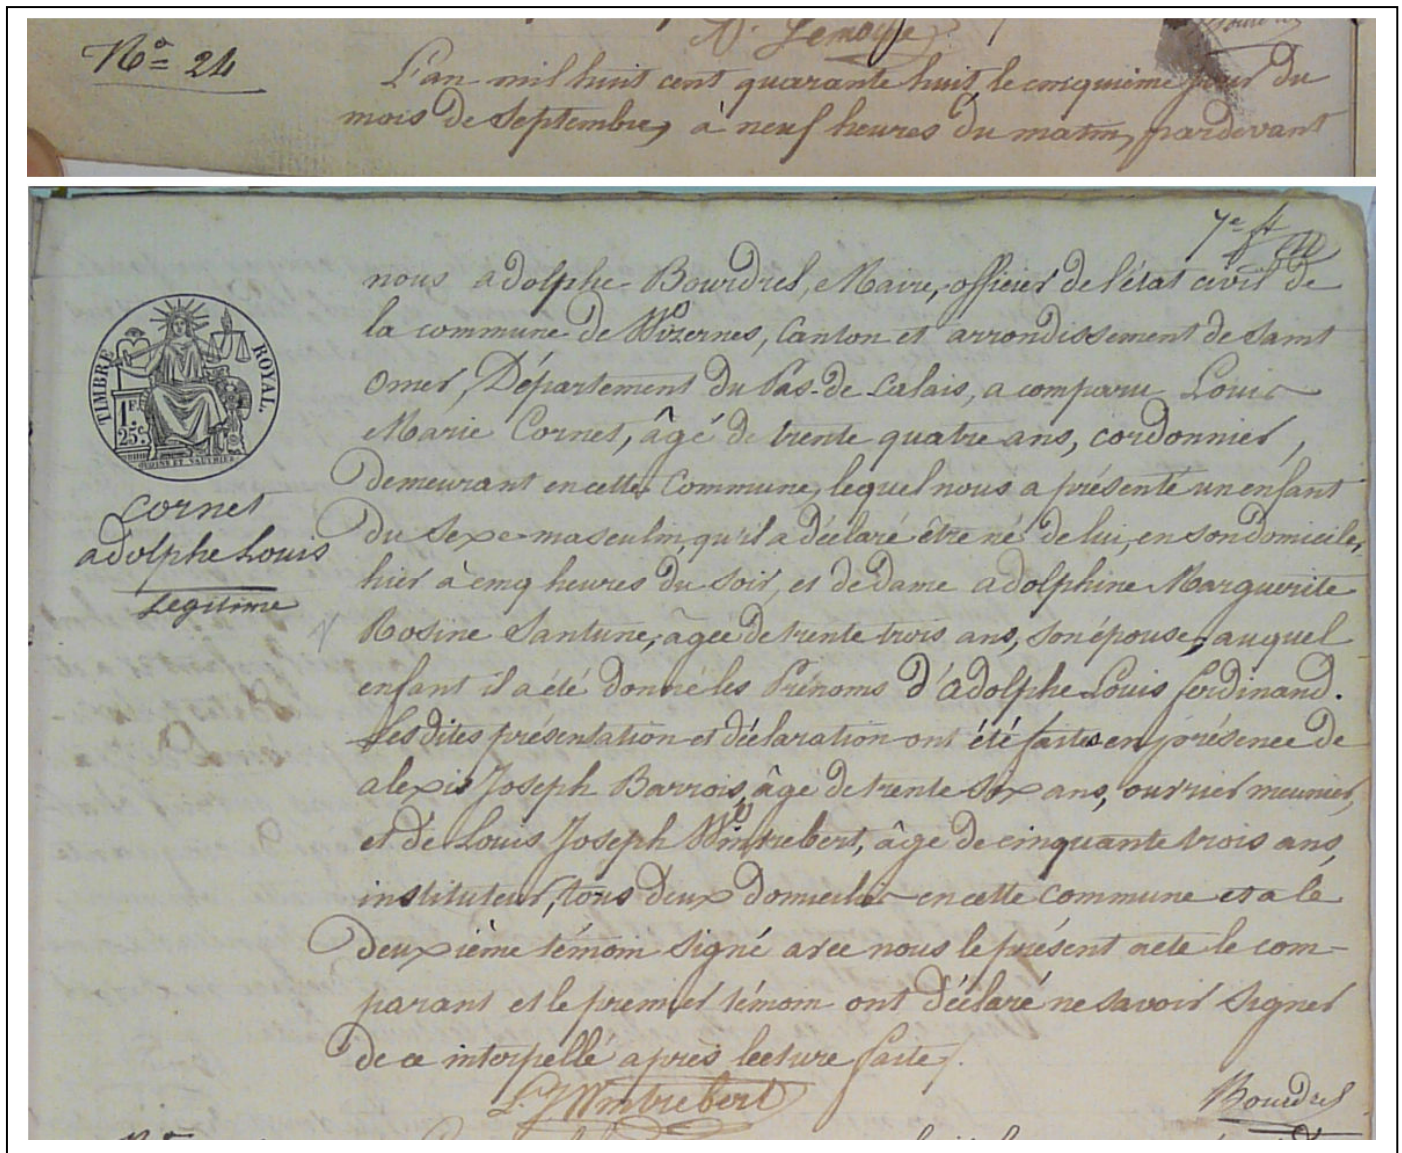 Lemoine
N° 24
L'an mil huit cent quarante huit, le cinquième jour du
mois de Septembre, à neuf heures du matin, pardevant
7e ft
nous adolphe Bourdrel, Maire, officier de l'état civil de
la commune de Wizernes, Canton et arrondissement de Saint
Omer, Département du Pas-de Calais, a comparu Louis
Marie Cornet, âgé de trente quatre ans, cordonnier,
demeurant en cette Commune, lequel nous a présenté un enfant
du sexe masculin, qu'il a déclaré être né de lui, en son domicile,
hier à cinq heures du soir, et de dame adolphine Marguerite
Rosine Santune, âgée de trente trois ans, son épouse, auquel
enfant il a été donné les Prénoms d'Adolphe Louis ferdinand.
Lesdites présentation et déclaration ont été faites en présence de
alexis Joseph Barrois, âgé de trente six ans, ouvrier meunier,
et de Louis Joseph Wintrebert, âgé de cinquante trois ans,
instituteur, tous deux domiciliés en cette commune et a le
deuxième témoin signé avec nous le présent acte le com-
parant et le premier témoin ont déclaré ne savoir signer
de ce interpellé après lecture faite.
L. J Wintrebert
Bourdrel
TIMBRE ROYAL.
1F.
25c.
cornet
adolphe Louis
Légitime